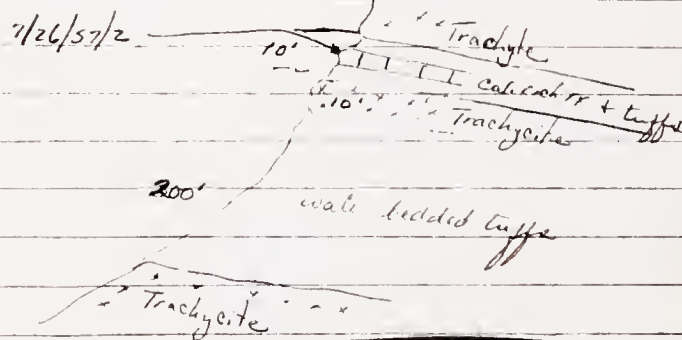 7/26/57/2
Trachyte
10'
calcich rr + tuffs
10'
Trachycite
200'
wale bedded tuffs
Trachycite